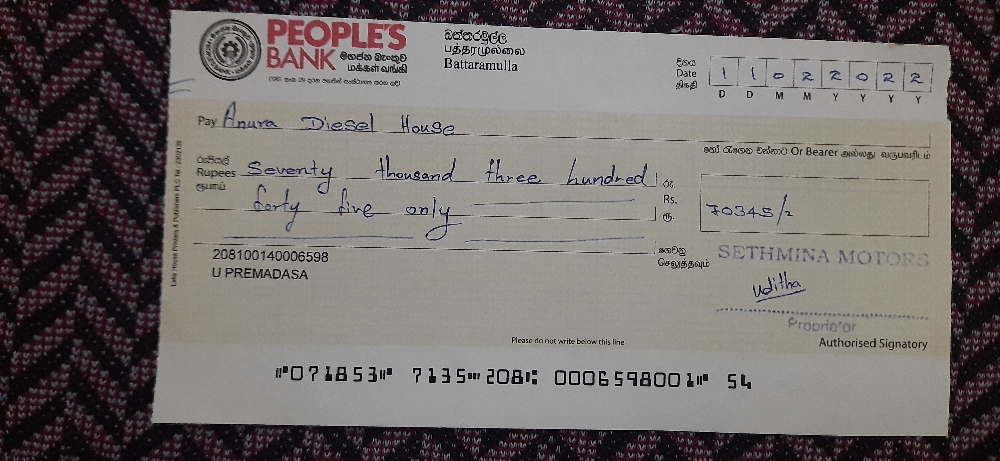 PEOPLE'S
BANK මහජන බැංකුව
மக்கள் வங்கி
බත්තරමුල්ල
பத்தரமுல்லை
Battaramulla
දිනය
Date
திகதி
1 1 0 2 2 0 2 2
D D M M Y Y Y Y
Pay Anura Diesel House
හෝ රැගෙන එන්නාට Or Bearer அல்லது வருபவரிடம்
රුපියල්
Rupees Seventy thousand three hundred
ரூபாய்
forty five only
රු.
Rs.
ரூ.
70345/=
ගෙවනු
செலுத்தவும்
208100140006598
U PREMADASA
SETHMINA MOTORS
Uditha
Proprietor
Authorised Signatory
Please do not write below this line
⑈071853⑈ 7135⑉208⑆ 0006598001⑈ 54